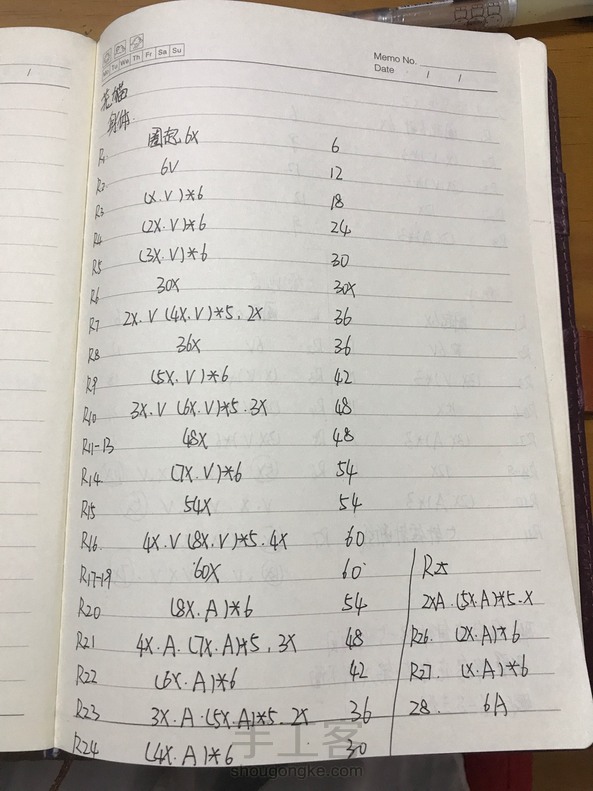 Mo Tu We Th Fr Sa Su
Memo No.
Date / /
花猫
身体
R1 圈起6X 6
R2 6V 12
R3 (X.V)*6 18
R4 (2X.V)*6 24
R5 (3X.V)*6 30
R6 30X 30X
R7 2X.V(4X.V)*5.2X 36
R8 36X 36
R9 (5X.V)*6 42
R10 3X.V(6X.V)*5.3X 48
R11-13 48X 48
R14 (7X.V)*6 54
R15 54X 54
R16 4X.V(8X.V)*5.4X 60
R17-19 60X 60
R20 (8X.A)*6 54
R21 4X.A.(7X.A)*5,3X 48
R22 (6X.A)*6 42
R23 3X.A.(5X.A)*5.2X 36
R24 (4X.A)*6 30
R25
2XA.(5X.A)*5.X
R26. (2X.A)*6
R27. (X.A)*6
28. 6A
手工客
shougongke.com